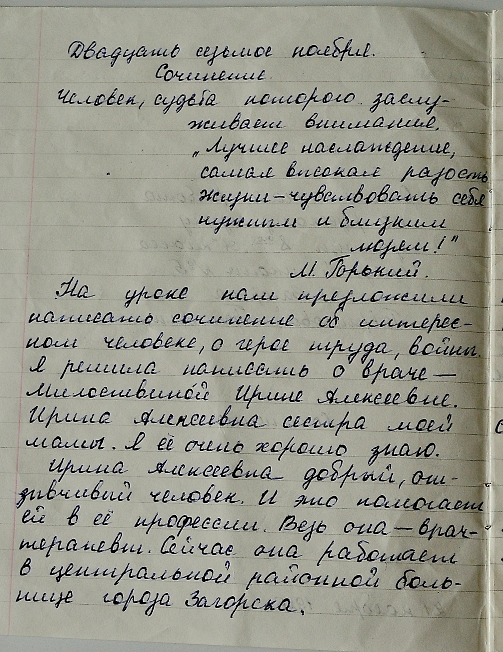 Двадцать седьмое ноября.
Сочинение.
Человек, судьба которого заслу-
живает внимания.
„Лучшее наслаждение,
самая высокая радость
жизни – чувствовать себя
нужным и близким
людям!"
М. Горький.
На уроке нам предложили
написать сочинение об интерес-
ном человеке, о герое труда, войны.
Я решила написать о враче –
Милоствиной Ирине Алексеевне.
Ирина Алексеевна сестра моей
мамы. Я её очень хорошо знаю.
Ирина Алексеевна добрый, от-
зывчивый человек. И это помогает
ей в её профессии. Ведь она – врач-
терапевт. Сейчас она работает
в центральной районной боль-
нице города Загорска.